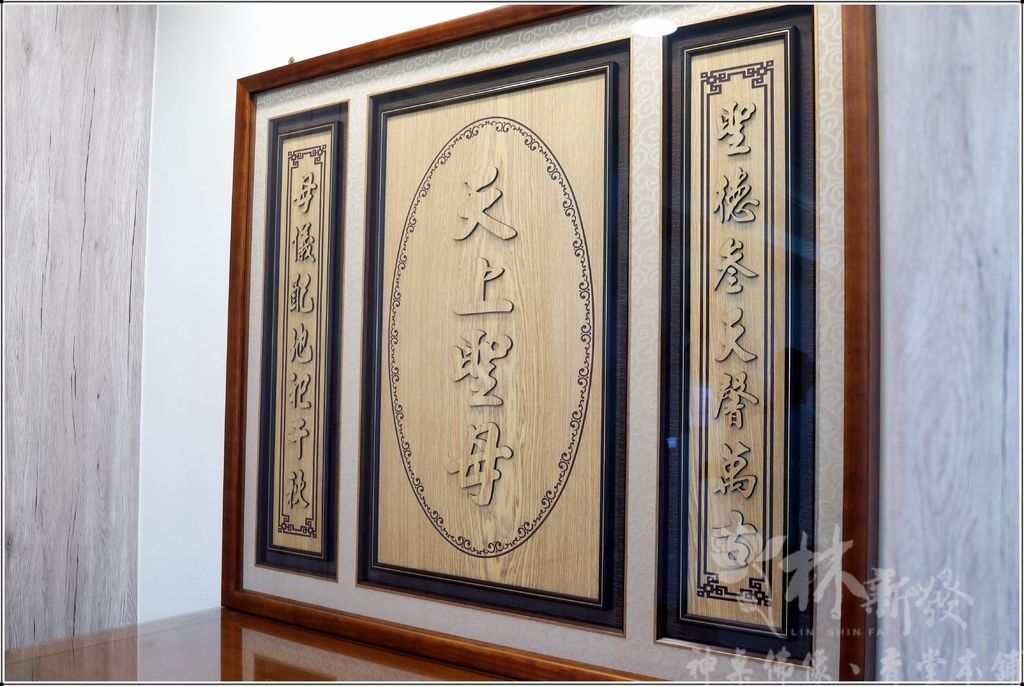 聖德叄天馨萬古
天上聖母
母儀配地祀千秋
林新發
LIN SHIN FA
神桌佛像、香堂本舖